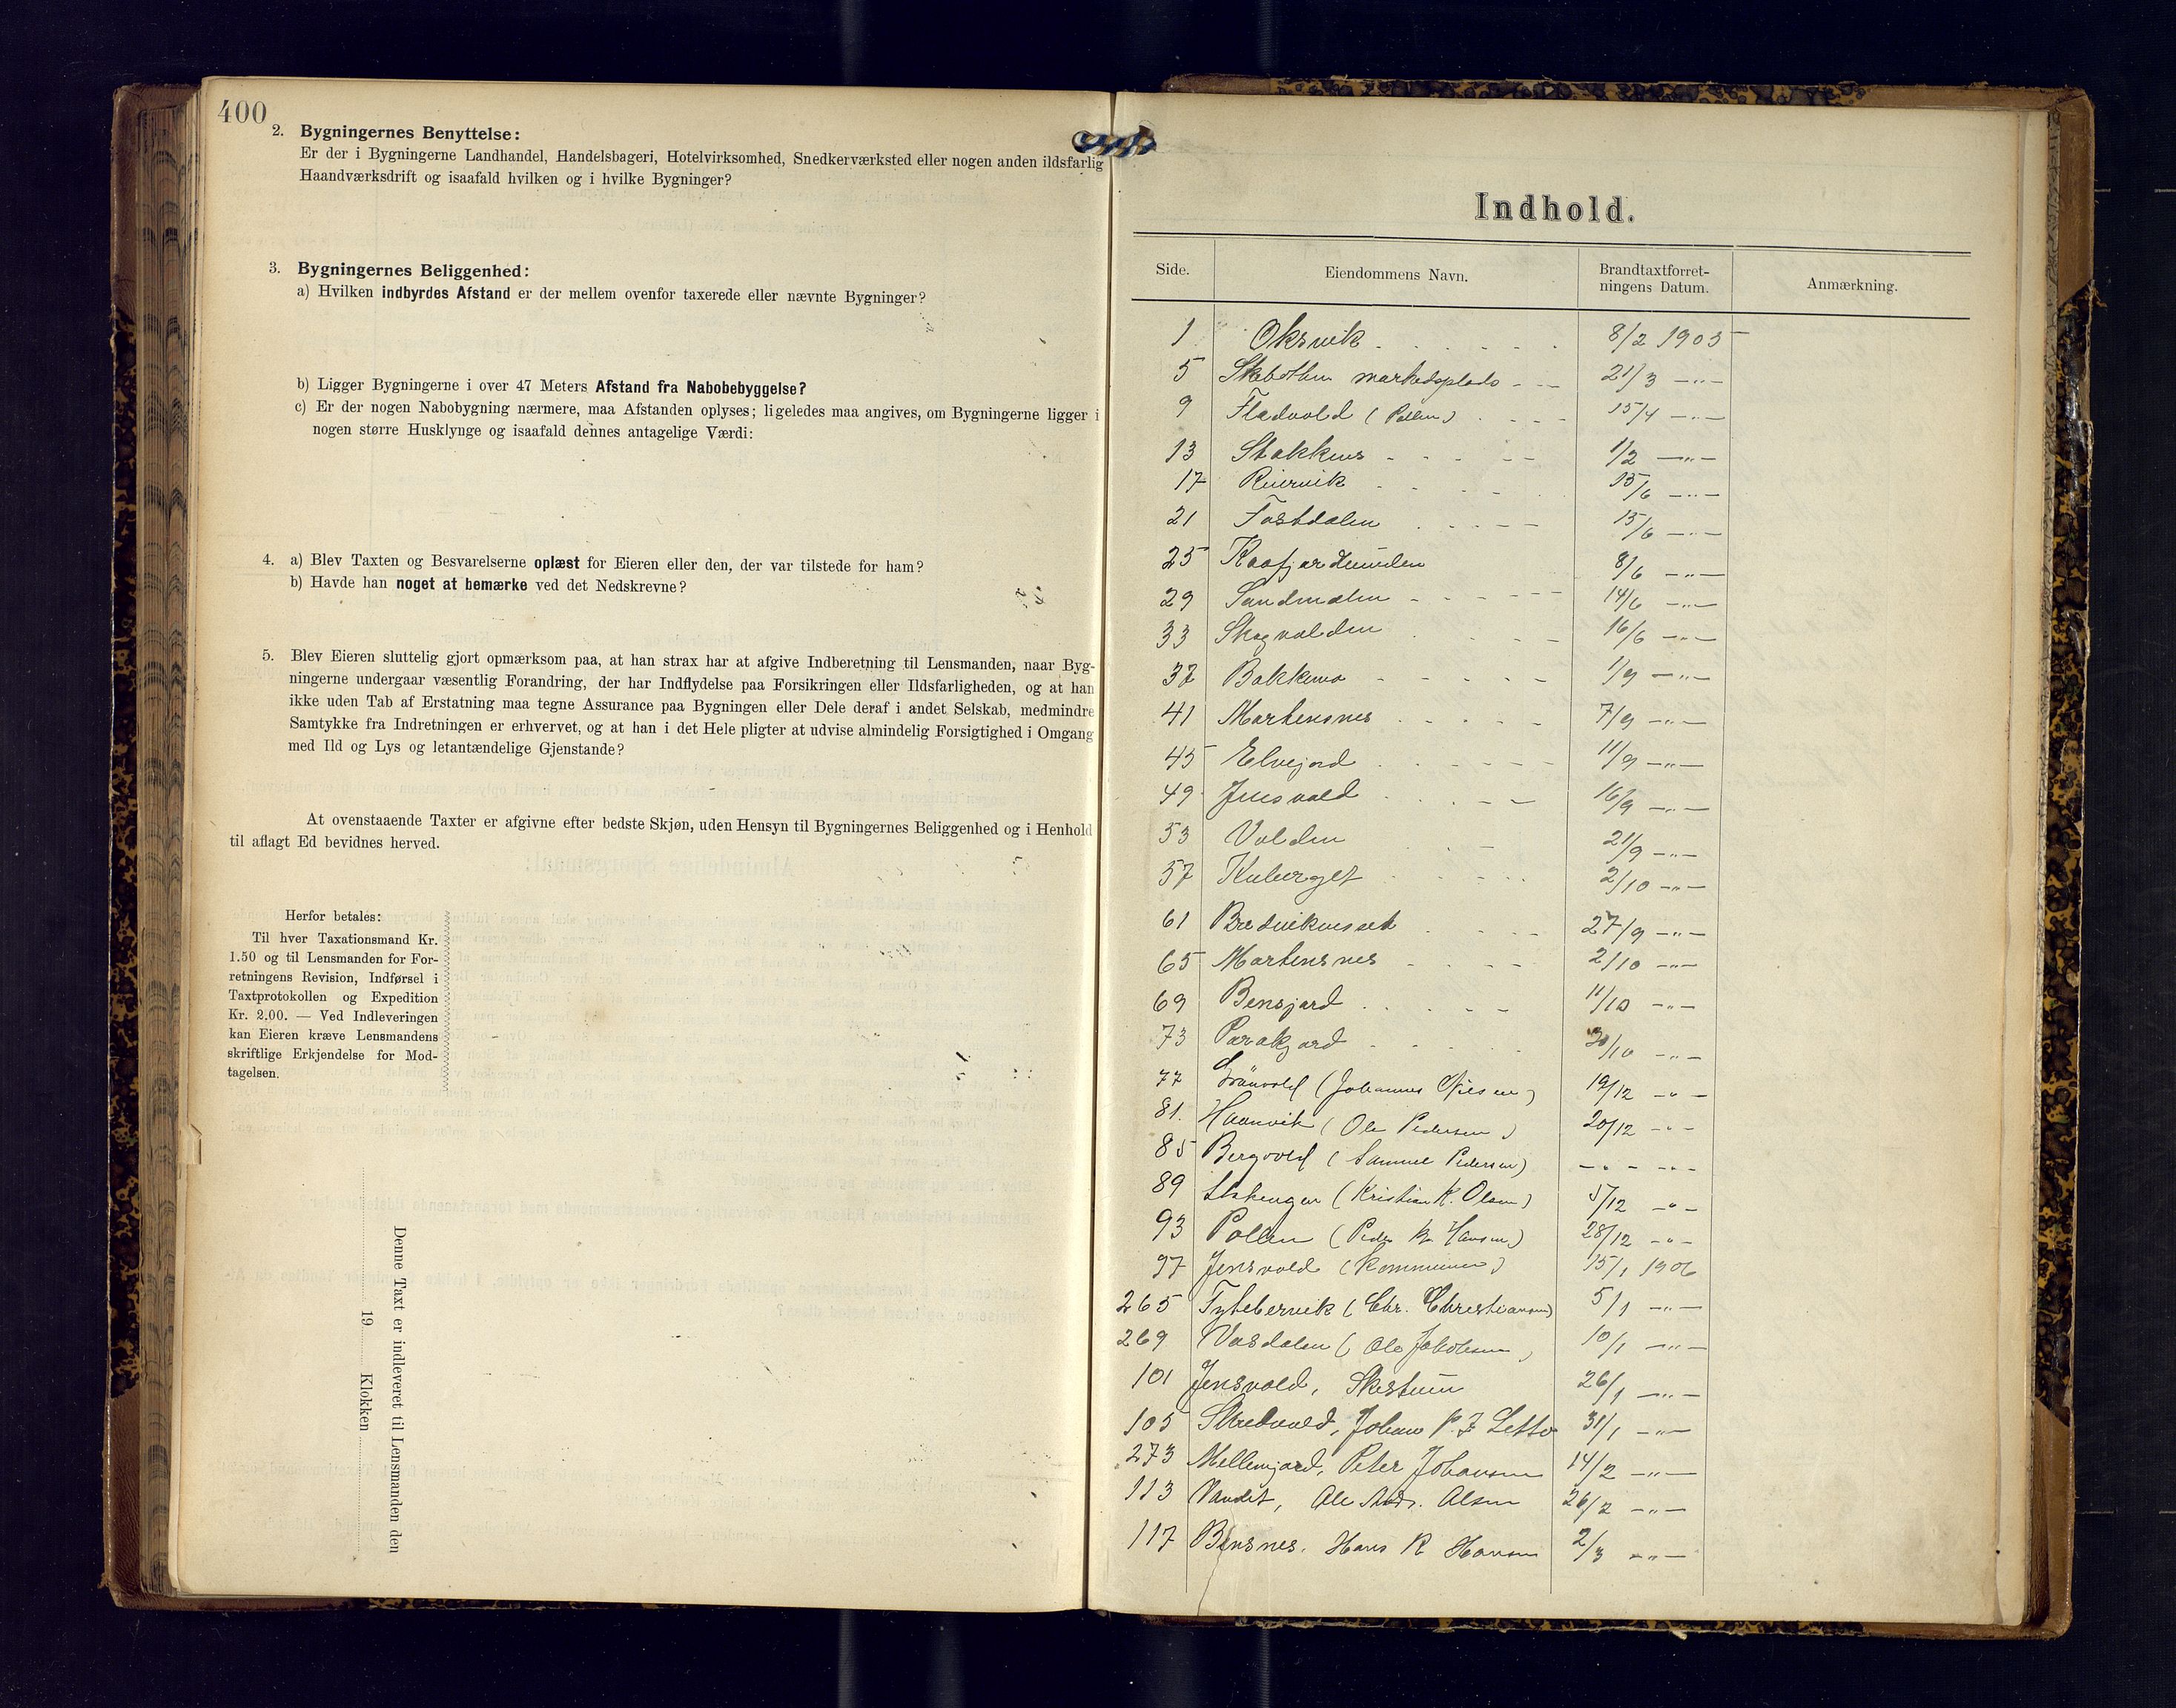 400
2. Bygningernes Benyttelse:
Er der i Bygningerne Landhandel, Handelsbageri, Hotelvirksomhed, Snedkerværksted eller nogen anden ildsfarlig
Haandværksdrift og isaafald hvilken og i hvilke Bygninger?
3. Bygningernes Beliggenhed:
a) Hvilken indbyrdes Afstand er der mellem ovenfor taxerede eller nævnte Bygninger?
b) Ligger Bygningerne i over 47 Meters Afstand fra Nabobebyggelse?
c) Er der nogen Nabobygning nærmere, maa Afstanden oplyses; ligeledes maa angives, om Bygningerne ligger i
nogen større Husklynge og isaafald dennes antagelige Værdi:
4. a) Blev Taxten og Besvarelserne oplæst for Eieren eller den, der var tilstede for ham?
b) Havde han noget at bemærke ved det Nedskrevne?
5. Blev Eieren sluttelig gjort opmærksom paa, at han strax har at afgive Indberetning til Lensmanden, naar Byg-
ningerne undergaar væsentlig Forandring, der har Indflydelse paa Forsikringen eller Ildsfarligheden, og at han
ikke uden Tab af Erstatning maa tegne Assurance paa Bygningen eller Dele deraf i andet Selskab, medmindre
Samtykke fra Indretningen er erhvervet, og at han i det Hele pligter at udvise almindelig Forsigtighed i Omgang
med Ild og Lys og letantændelige Gjenstande?
At ovenstaaende Taxter er afgivne efter bedste Skjøn, uden Hensyn til Bygningernes Beliggenhed og i Henhold
til aflagt Ed bevidnes herved.
Herfor betales:
Til hver Taxationsmand Kr.
1.50 og til Lensmanden for For-
retningens Revision, Indførsel i
Taxtprotokollen og Expedition
Kr. 2.00. — Ved Indleveringen
kan Eieren kræve Lensmandens
skriftlige Erkjendelse for Mod-
tagelsen.
Denne Taxt er indleveret til Lensmanden den
19 Klokken
Indhold.
Side. Eiendommens Navn. Brandtaxtforret-
ningens Datum. Anmærkning.
1 Oksvik 8/2 1905
5 Skibotten markedsplads 21/3 —"—
9 Fladvold (Pollen) 15/4 —"—
13 Stakkens 1/2 —"—
17 15/6 —"—
21 Fastdalen 15/6 —"—
25 8/6 —"—
29 Sandmælen 14/6 —"—
33 Skogvolden 16/6 —"—
37 Bakkemo 1/9 —"—
41 Martensnes 7/9 —"—
45 Elvejord 11/9 —"—
49 Jensvold 16/9 —"—
53 Volden 21/9 —"—
57 2/10 —"—
61 27/9 —"—
65 Martensnes 2/10 —"—
69 Bensjord 11/10 —"—
73 30/10 —"—
77 Grönvold (Johannes Nilsen) 19/12 —"—
81. (Ole Pedersen) 20/12 —"—
85 Bergvold (Samuel Pedersen) —"— —"—
89 (Kristian K. Olsen) 5/12 —"—
93 Pollen (Peder Hansen) 28/12 —"—
97 Jensvold (Kommunen) 15/1 1906
265 Tytebervik (Chr. Christiansen) 5/1 —"—
269 Vasdalen (Ole Jakobsen) 10/1 —"—
101 Jensvold, 26/1 —"—
105 Johan P. 31/1 —"—
273 Mellemjord, Peter Johansen 14/2 —"—
113 Vandet, Ole Andr. Olsen 26/2 —"—
117 Bensnes. Hans R Hansen 2/3 —"—